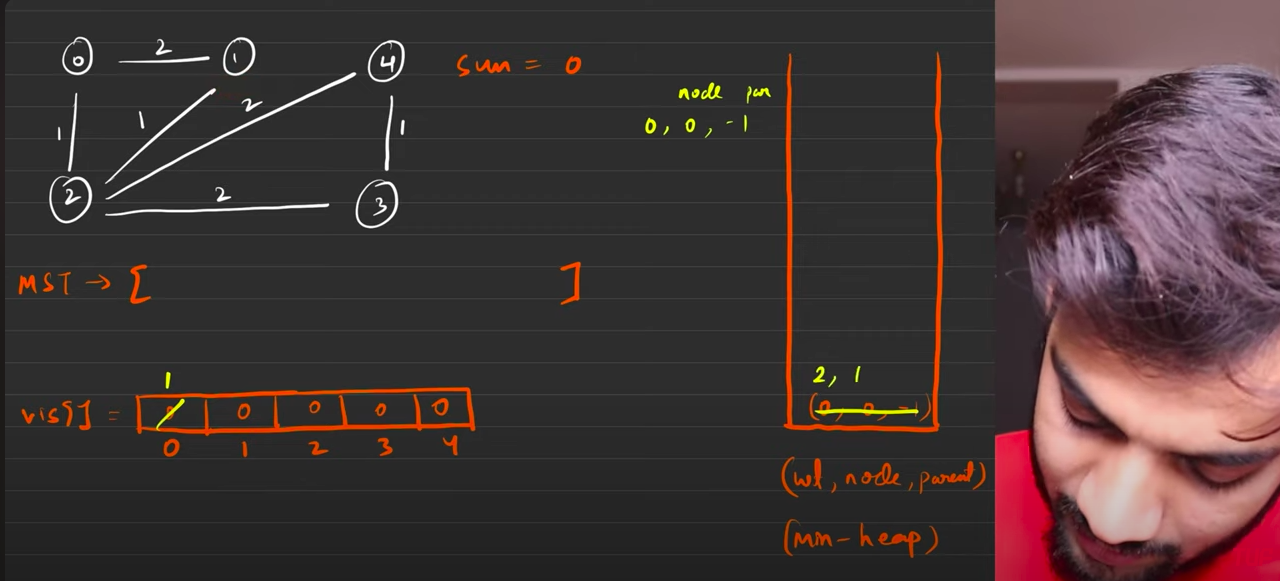 0 2 1 4
sum = 0
node par
0, 0, -1
1 1 2 1
2 2 3
MST → [ ]
1
vis[] = 0 0 0 0 0
0 1 2 3 4
2, 1
(0, 0, -1)
(wt, node, parent)
(min-heap)